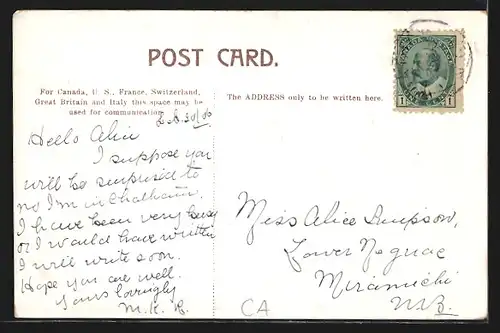 POST CARD.
For Canada, U. S., France, Switzerland,
Great Britain and Italy this space may be
used for communication.
The ADDRESS only to be written here.
CANADA POSTAGE
1 1
30/06
Hello Alice
I suppose you
will be surprised to
no I'm in Chatham.
I have been very busy
or I would have written
I will write soon.
Hope you are well.
Yours lovingly
M. R.
Miss Alice Simpson,
Lower Neguac
Miramichi
N.B.
CA